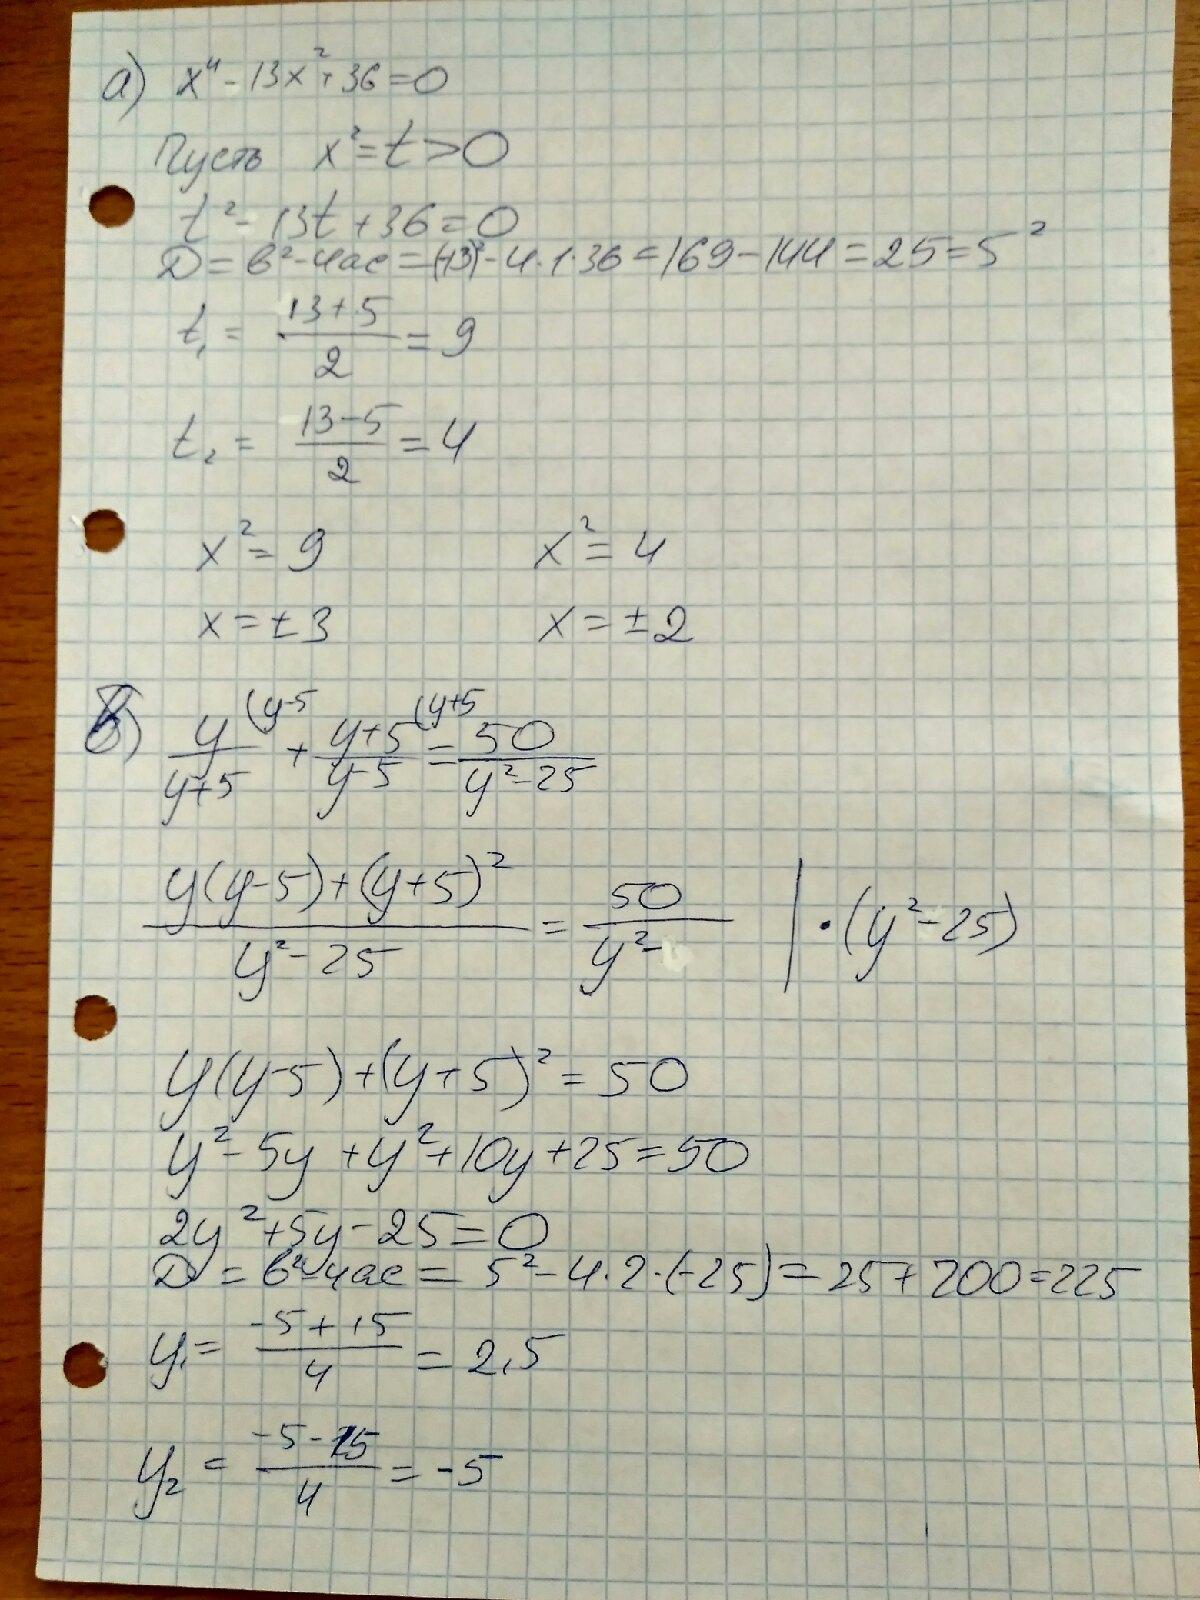 а) x⁴ - 13x² + 36 = 0
Пусть x² = t > 0
t² - 13t + 36 = 0
D = b² - 4ac = (-13)² - 4·1·36 = 169 - 144 = 25 = 5²
t₁ = (13+5)/2 = 9
t₂ = (13-5)/2 = 4
x² = 9 x² = 4
x = ±3 x = ±2
б) y/(y+5) (y-5 + (y+5)/(y-5) (y+5 = 50/(y²-25)
(y(y-5)+(y+5)²)/(y²-25) = 50/(y²- | ·(y²-25)
y(y-5)+(y+5)² = 50
y² - 5y + y² + 10y + 25 = 50
2y² + 5y - 25 = 0
D = b² - 4ac = 5² - 4·2·(-25) = 25 + 200 = 225
y₁ = (-5+15)/4 = 2,5
y₂ = (-5-15)/4 = -5